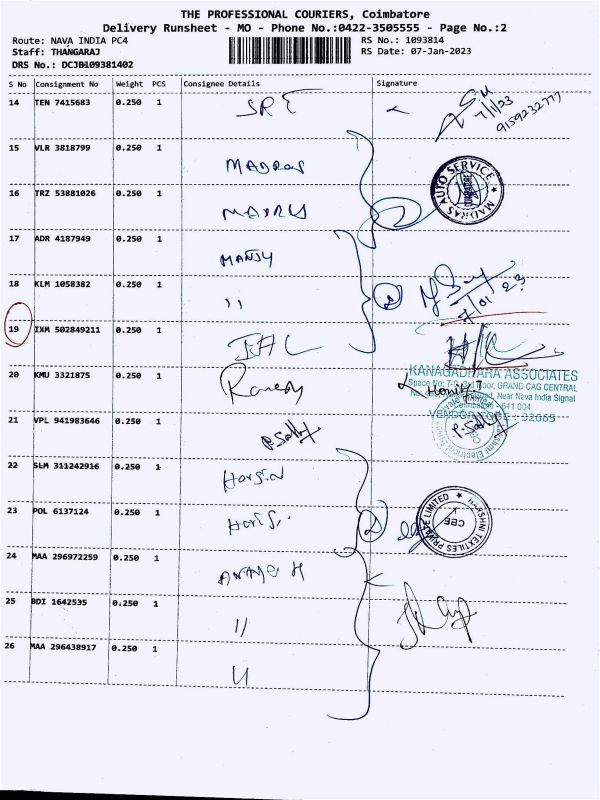 THE PROFESSIONAL COURIERS, Coimbatore
Delivery Runsheet - MO - Phone No.:0422-3505555 - Page No.:2
Route: NAVA INDIA PC4 RS No.: 1093814
Staff: THANGARAJ RS Date: 07-Jan-2023
DRS No.: DCJB109381402
S No Consignment No Weight PCS Consignee Details Signature
14 TEN 7415683 0.250 1 SRE
7/1/23
9159232777
15 VLR 3818799 0.250 1 MADRAS
MADRAS AUTO SERVICE
16 TRZ 53881026 0.250 1 MADRAS
17 ADR 4187949 0.250 1 MANJU
18 KLM 1058382 0.250 1 "
7/01/23
19 IXM 502849211 0.250 1
KANAGADHARA ASSOCIATES
20 KMU 3321875 0.250 1 Ramesh
GRAND CAG CENTRAL
Near Nava India Signal
Coimbatore - 641 004
VENDOR CODE : 32065
21 VPL 941983646 0.250 1
22 SLM 311242916 0.250 1
HARSHNI TEXTILES PRIVATE LIMITED
CBE
23 POL 6137124 0.250 1
24 MAA 296972259 0.250 1
25 BDI 1642535 0.250 1 "
26 MAA 296438917 0.250 1 "